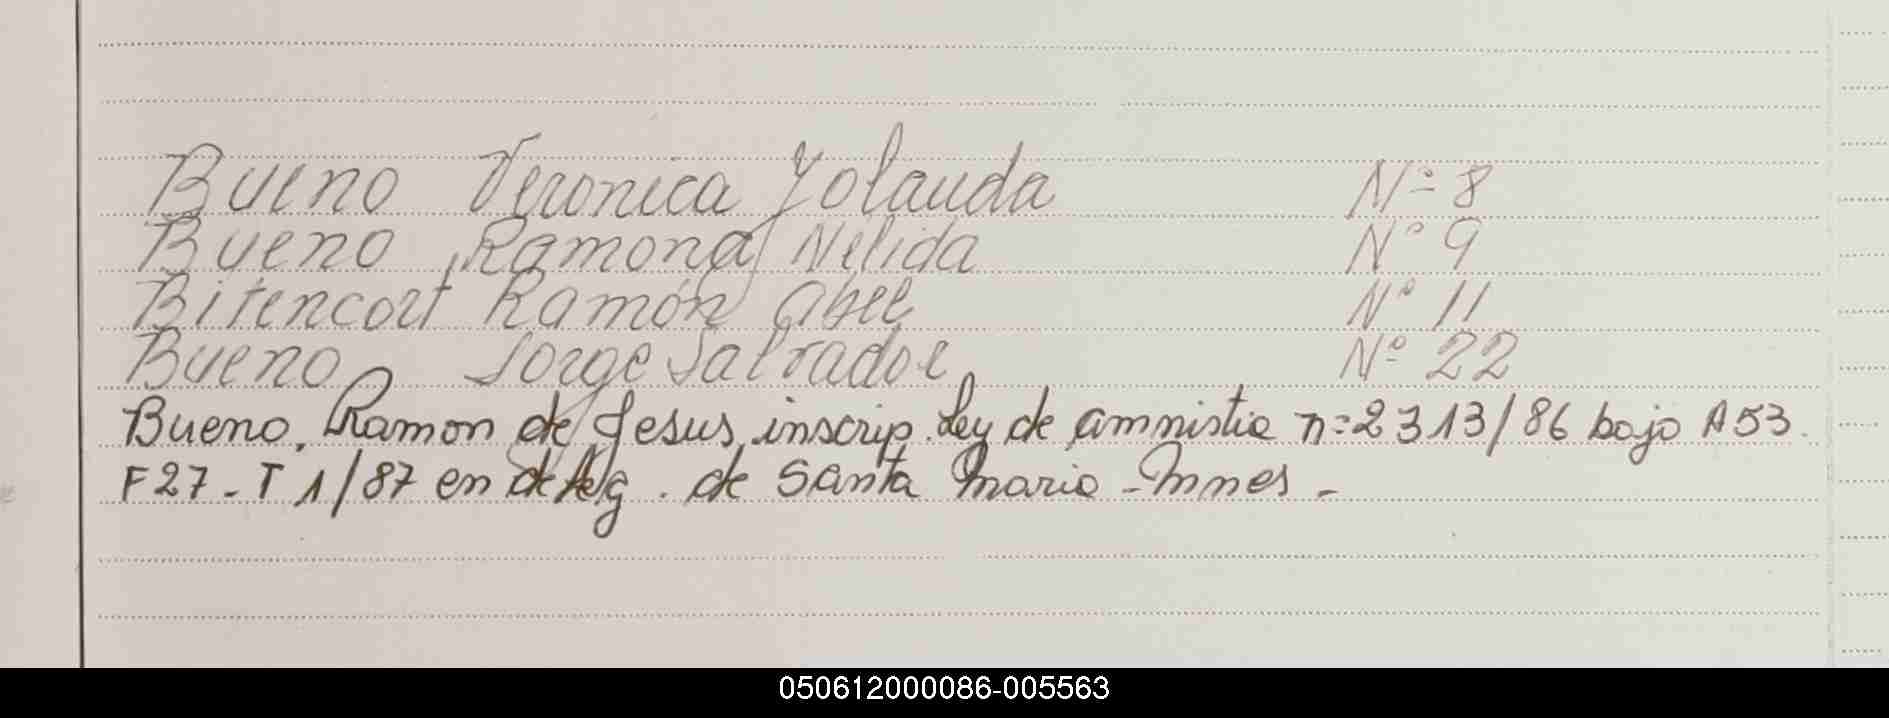 Bueno Veronica Yolanda Nº 8
Bueno, Ramona Nelida Nº 9
Bitencort, Ramón Abel Nº 11
Bueno Jorge Salvador Nº 22
Bueno, Ramon de Jesus, inscrip. Ley de amnistia n=2313/86 bajo A53.
F27-T1/87 en deleg. de Santa Maria - Mnes -
050612000086-005563